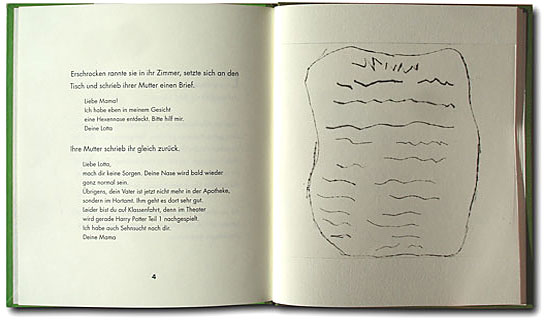 Erschrocken rannte sie in ihr Zimmer, setzte sich an den
Tisch und schrieb ihrer Mutter einen Brief.
Liebe Mama!
Ich habe eben in meinem Gesicht
eine Hexennase entdeckt. Bitte hilf mir.
Deine Lotta
Ihre Mutter schrieb ihr gleich zurück.
Liebe Lotta,
mach dir keine Sorgen. Deine Nase wird bald wieder
ganz normal sein.
Übrigens, dein Vater ist jetzt nicht mehr in der Apotheke,
sondern im Hortamt. Ihm geht es dort sehr gut.
Leider bist du auf Klassenfahrt, denn im Theater
wird gerade Harry Potter Teil 1 nachgespielt.
Ich habe auch Sehnsucht nach dir.
Deine Mama
4